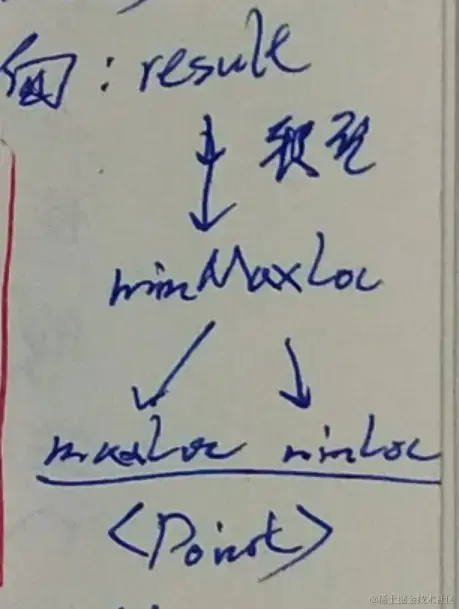 : result
minMaxLoc
maxLoc minLoc
<Point>
@稀土掘金技术社区